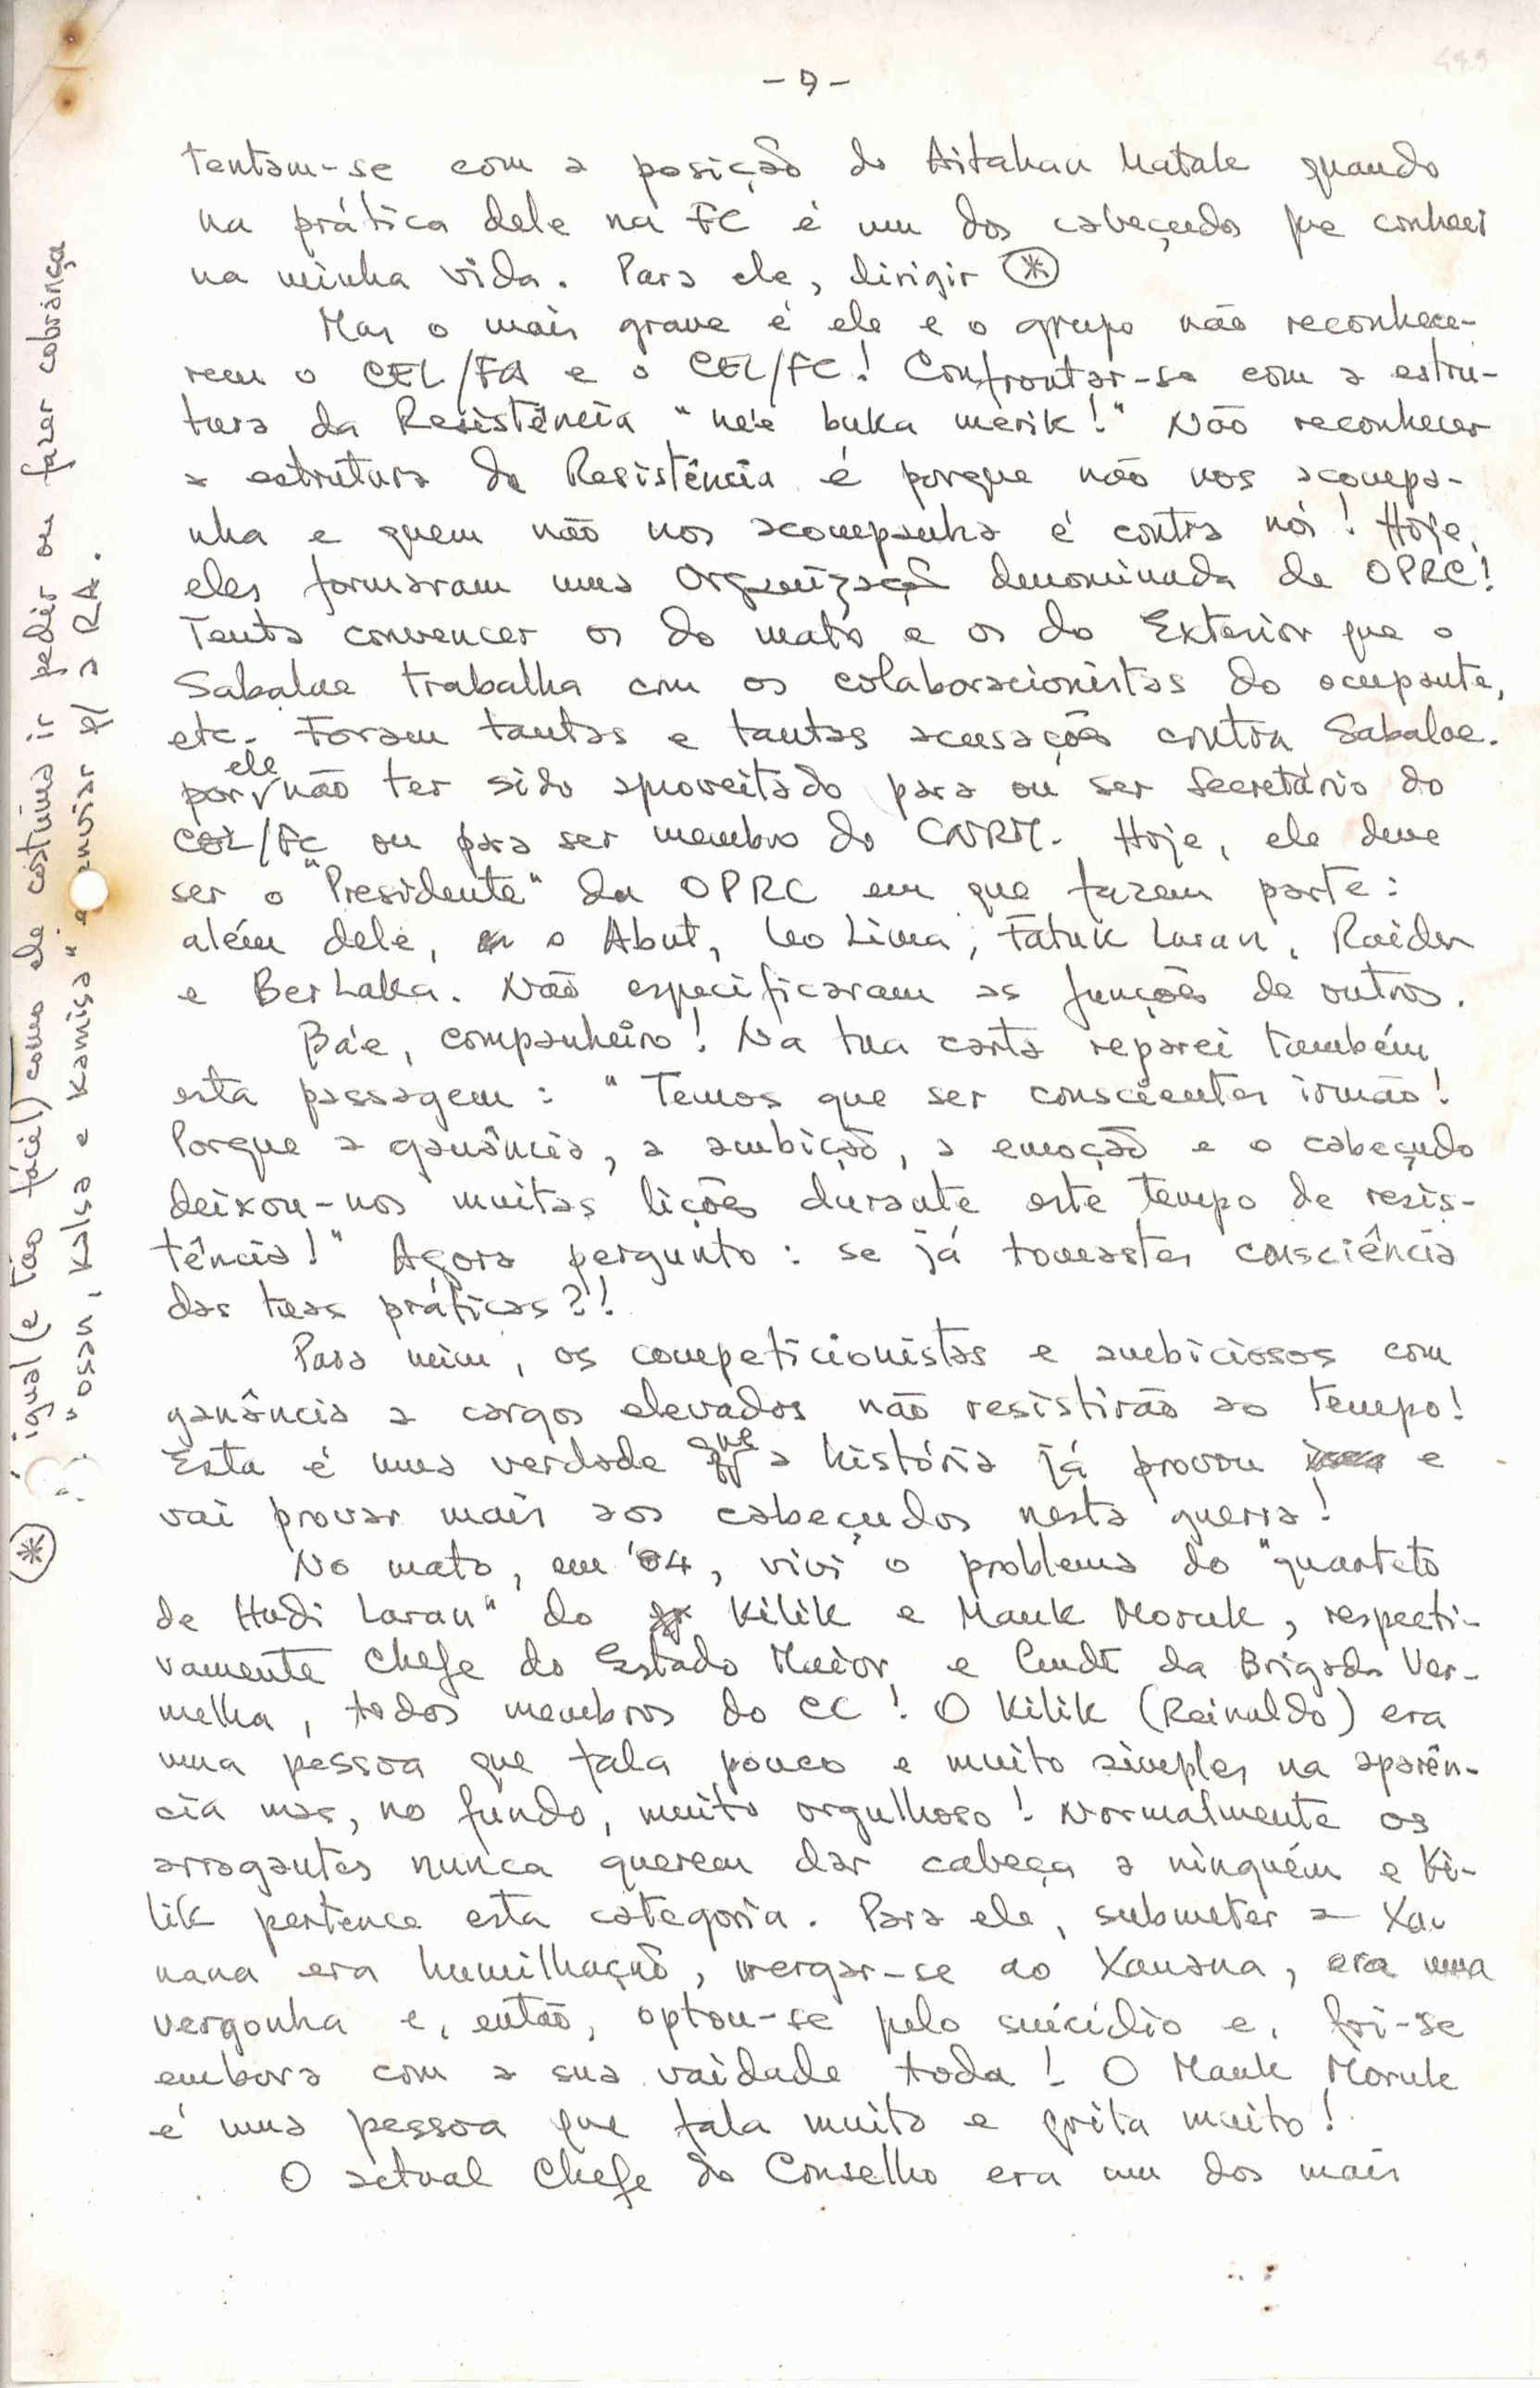 - 9 -
tentam-se com a posição do Aitahan Matak quando
na prática dele na FC é um dos cabeçudos que conheci
na minha vida. Para ele, dirigir (*)
Mas o mais grave é ele e o grupo não reconhece-
rem o CEL/FA e o CEL/FC! Confrontar-se com a estru-
tura da Resistência "ne'e buka merik!" Não reconhecer
a estrutura da Resistência é porque não nos acompa-
nha e quem não nos acompanha é contra nós! Hoje,
eles formaram uma Organização denominada de OPRC!
Tenta convencer os do mato e os do Exterior que o
Sabalae trabalha com os colaboracionistas do ocupante,
etc. Foram tantas e tantas acusações contra Sabalae.
por ele não ter sido aproveitado para ou ser Secretário do
CEL/FC ou para ser membro do CNRM. Hoje, ele deve
ser o "Presidente" da OPRC em que fazem parte:
além dele, o Abut, Leo Lima, Fatuk Laran, Raider
e Ber Laka. Não especificaram as funções de outros.
Bá'e, companheiro! Na tua carta reparei também
esta passagem: "Temos que ser conscientes irmão!
Porque a ganância, a ambição, a emoção e o cabeçudo
deixou-nos muitas lições durante este tempo de resis-
tência!" Agora pergunto: se já tomastes consciência
das tuas práticas?!
Para mim, os competicionistas e ambiciosos com
ganância a cargos elevados não resistirão ao tempo!
Esta é uma verdade que a história já provou e
vai provar mais aos cabeçudos nesta guerra!
No mato, em '84, vivi o problema do "quarteto
de Hudi Laran" do Kilik e Mauk Moruk, respecti-
vamente Chefe do Estado Maior e Cmdt da Brigada Ver-
melha, todos membros do CC! O Kilik (Reinaldo) era
uma pessoa que fala pouco e muito simples na aparên-
cia mas, no fundo, muito orgulhoso! Normalmente os
arrogantes nunca querem dar cabeça a ninguém e Ki-
lik pertence esta categoria. Para ele, submeter a Xa-
nana era humilhação, vergar-se ao Xanana, era uma
vergonha e, então, optou-se pelo suicídio e, foi-se
embora com a sua vaidade toda! O Mauk Moruk
é uma pessoa que fala muito e grita muito!
O actual Chefe do Conselho era um dos mais
(*) igual (e tão fácil) como ele costuma ir pedir ou fazer cobrança
"osan, kalsa e kamisa" e enviar p/ a RA.